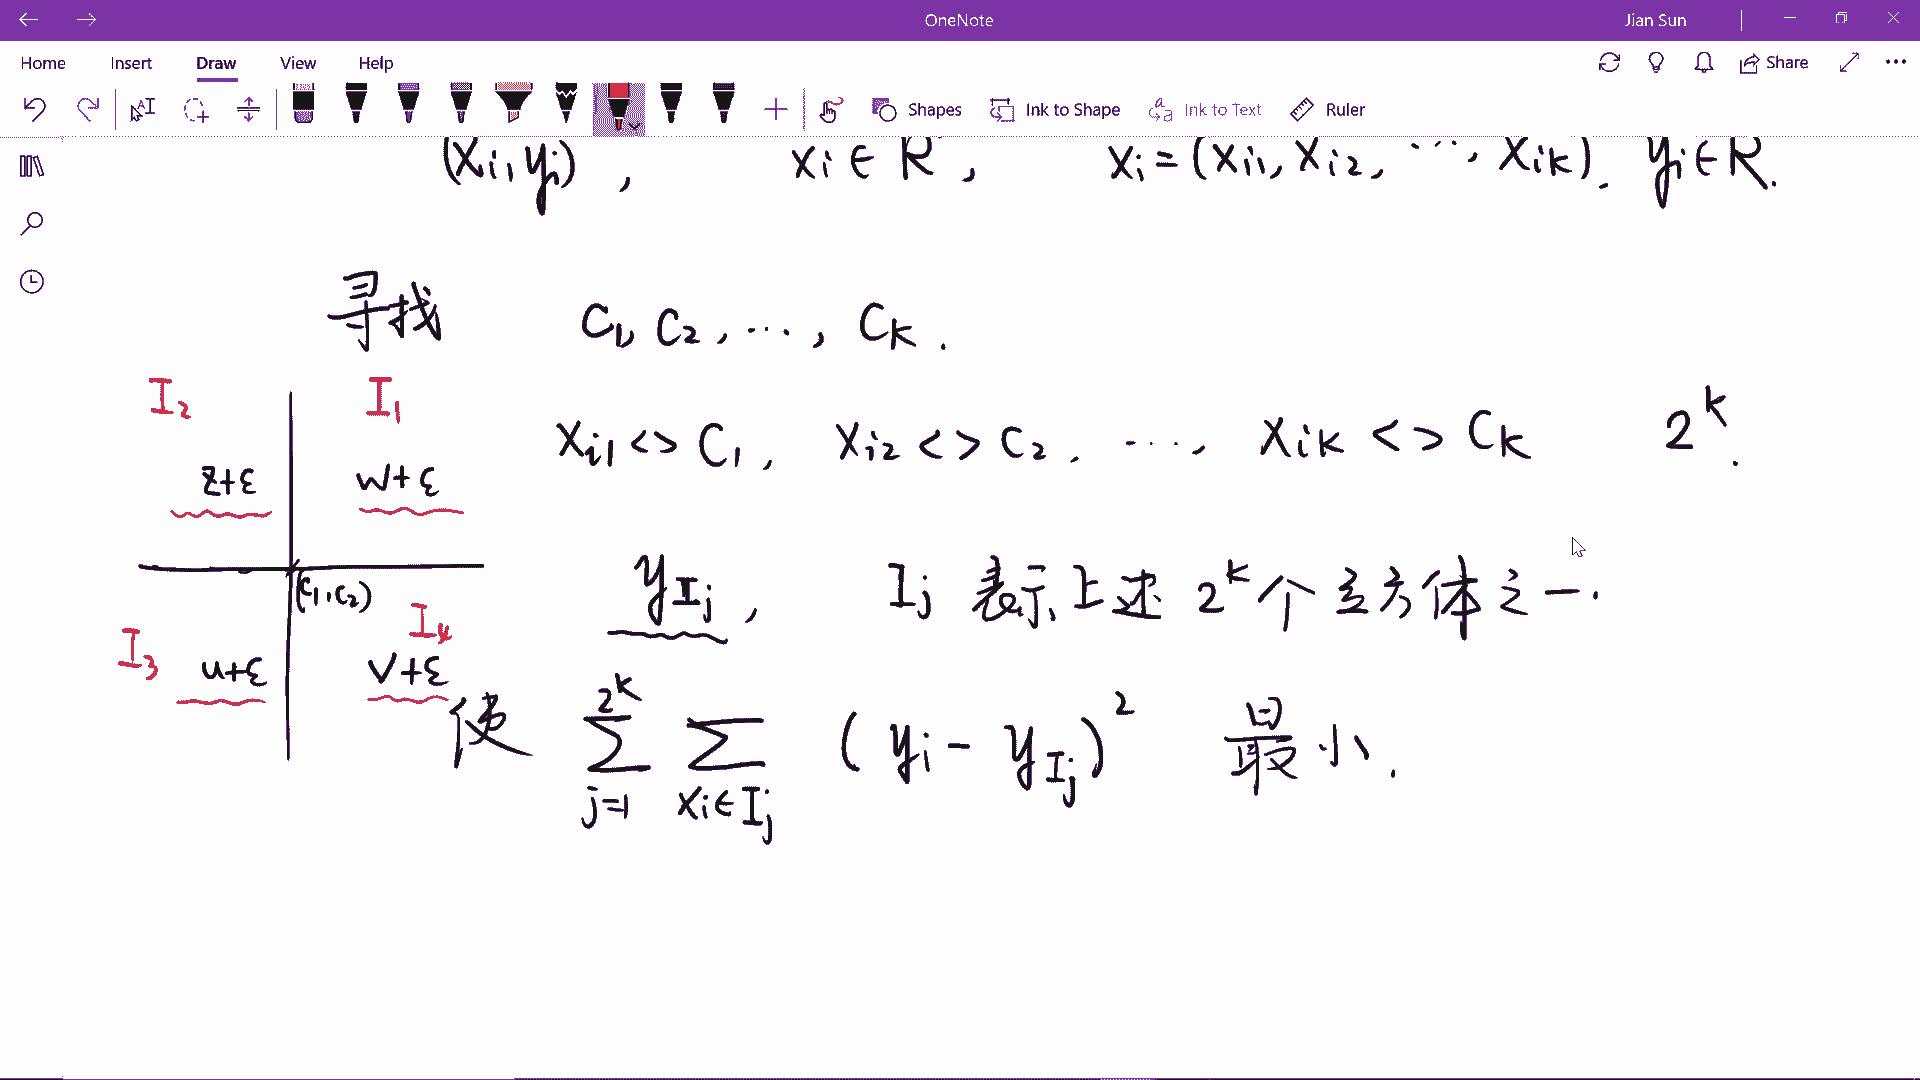 OneNote
Jian Sun
Home Insert Draw View Help
Share
Shapes Ink to Shape Ink to Text Ruler
(xi, yi), xi ∈ R, xi = (xi1, xi2, ⋯, xik). yi ∈ R.
寻找 C1, C2, ⋯, Ck.
I2 I1
xi1 <> C1, xi2 <> C2, ⋯, xik <> Ck 2^k.
z+ε w+ε
(c1, c2)
yIj, Ij 表示上述 2^k 个立方体之一.
I3 I4
u+ε v+ε
使 ∑_{j=1}^{2^k} ∑_{xi∈Ij} (yi - yIj)^2 最小.